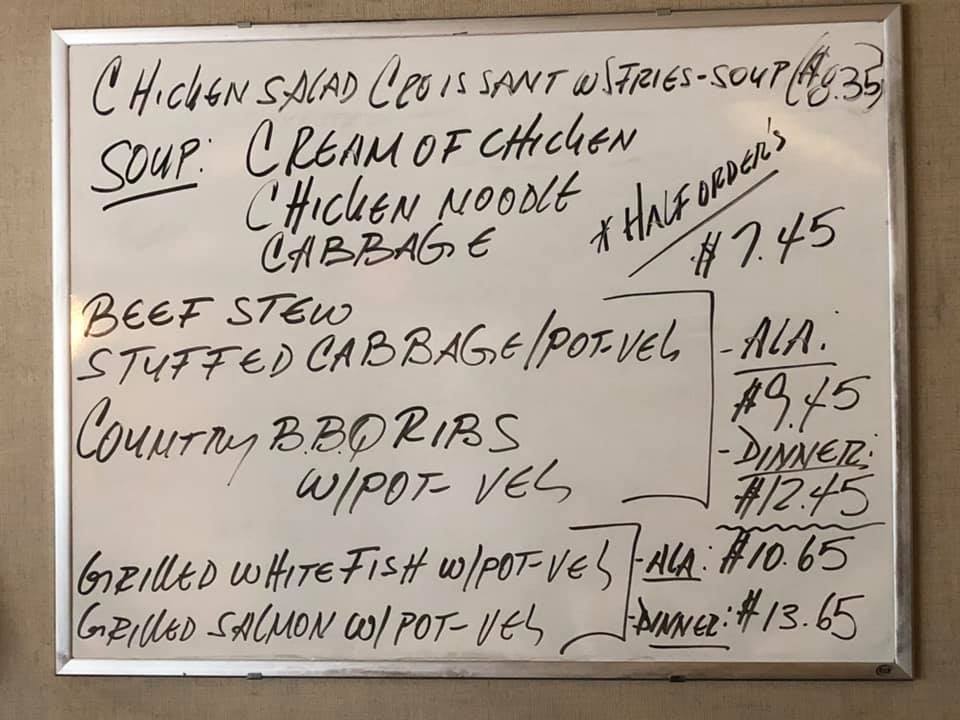 CHICKEN SALAD CROISSANT W/FRIES-SOUP ($8.35)
SOUP: CREAM OF CHICKEN
CHICKEN NOODLE
CABBAGE
* HALF ORDER'S
$7.45
BEEF STEW
STUFFED CABBAGE/POT-VEG
COUNTRY B.B.Q RIBS
W/POT- VEG
-ALA:
$9.45
-DINNER:
$12.45
GRILLED WHITEFISH W/POT-VEG
GRILLED SALMON W/POT- VEG
-ALA: $10.65
-DINNER: $13.65